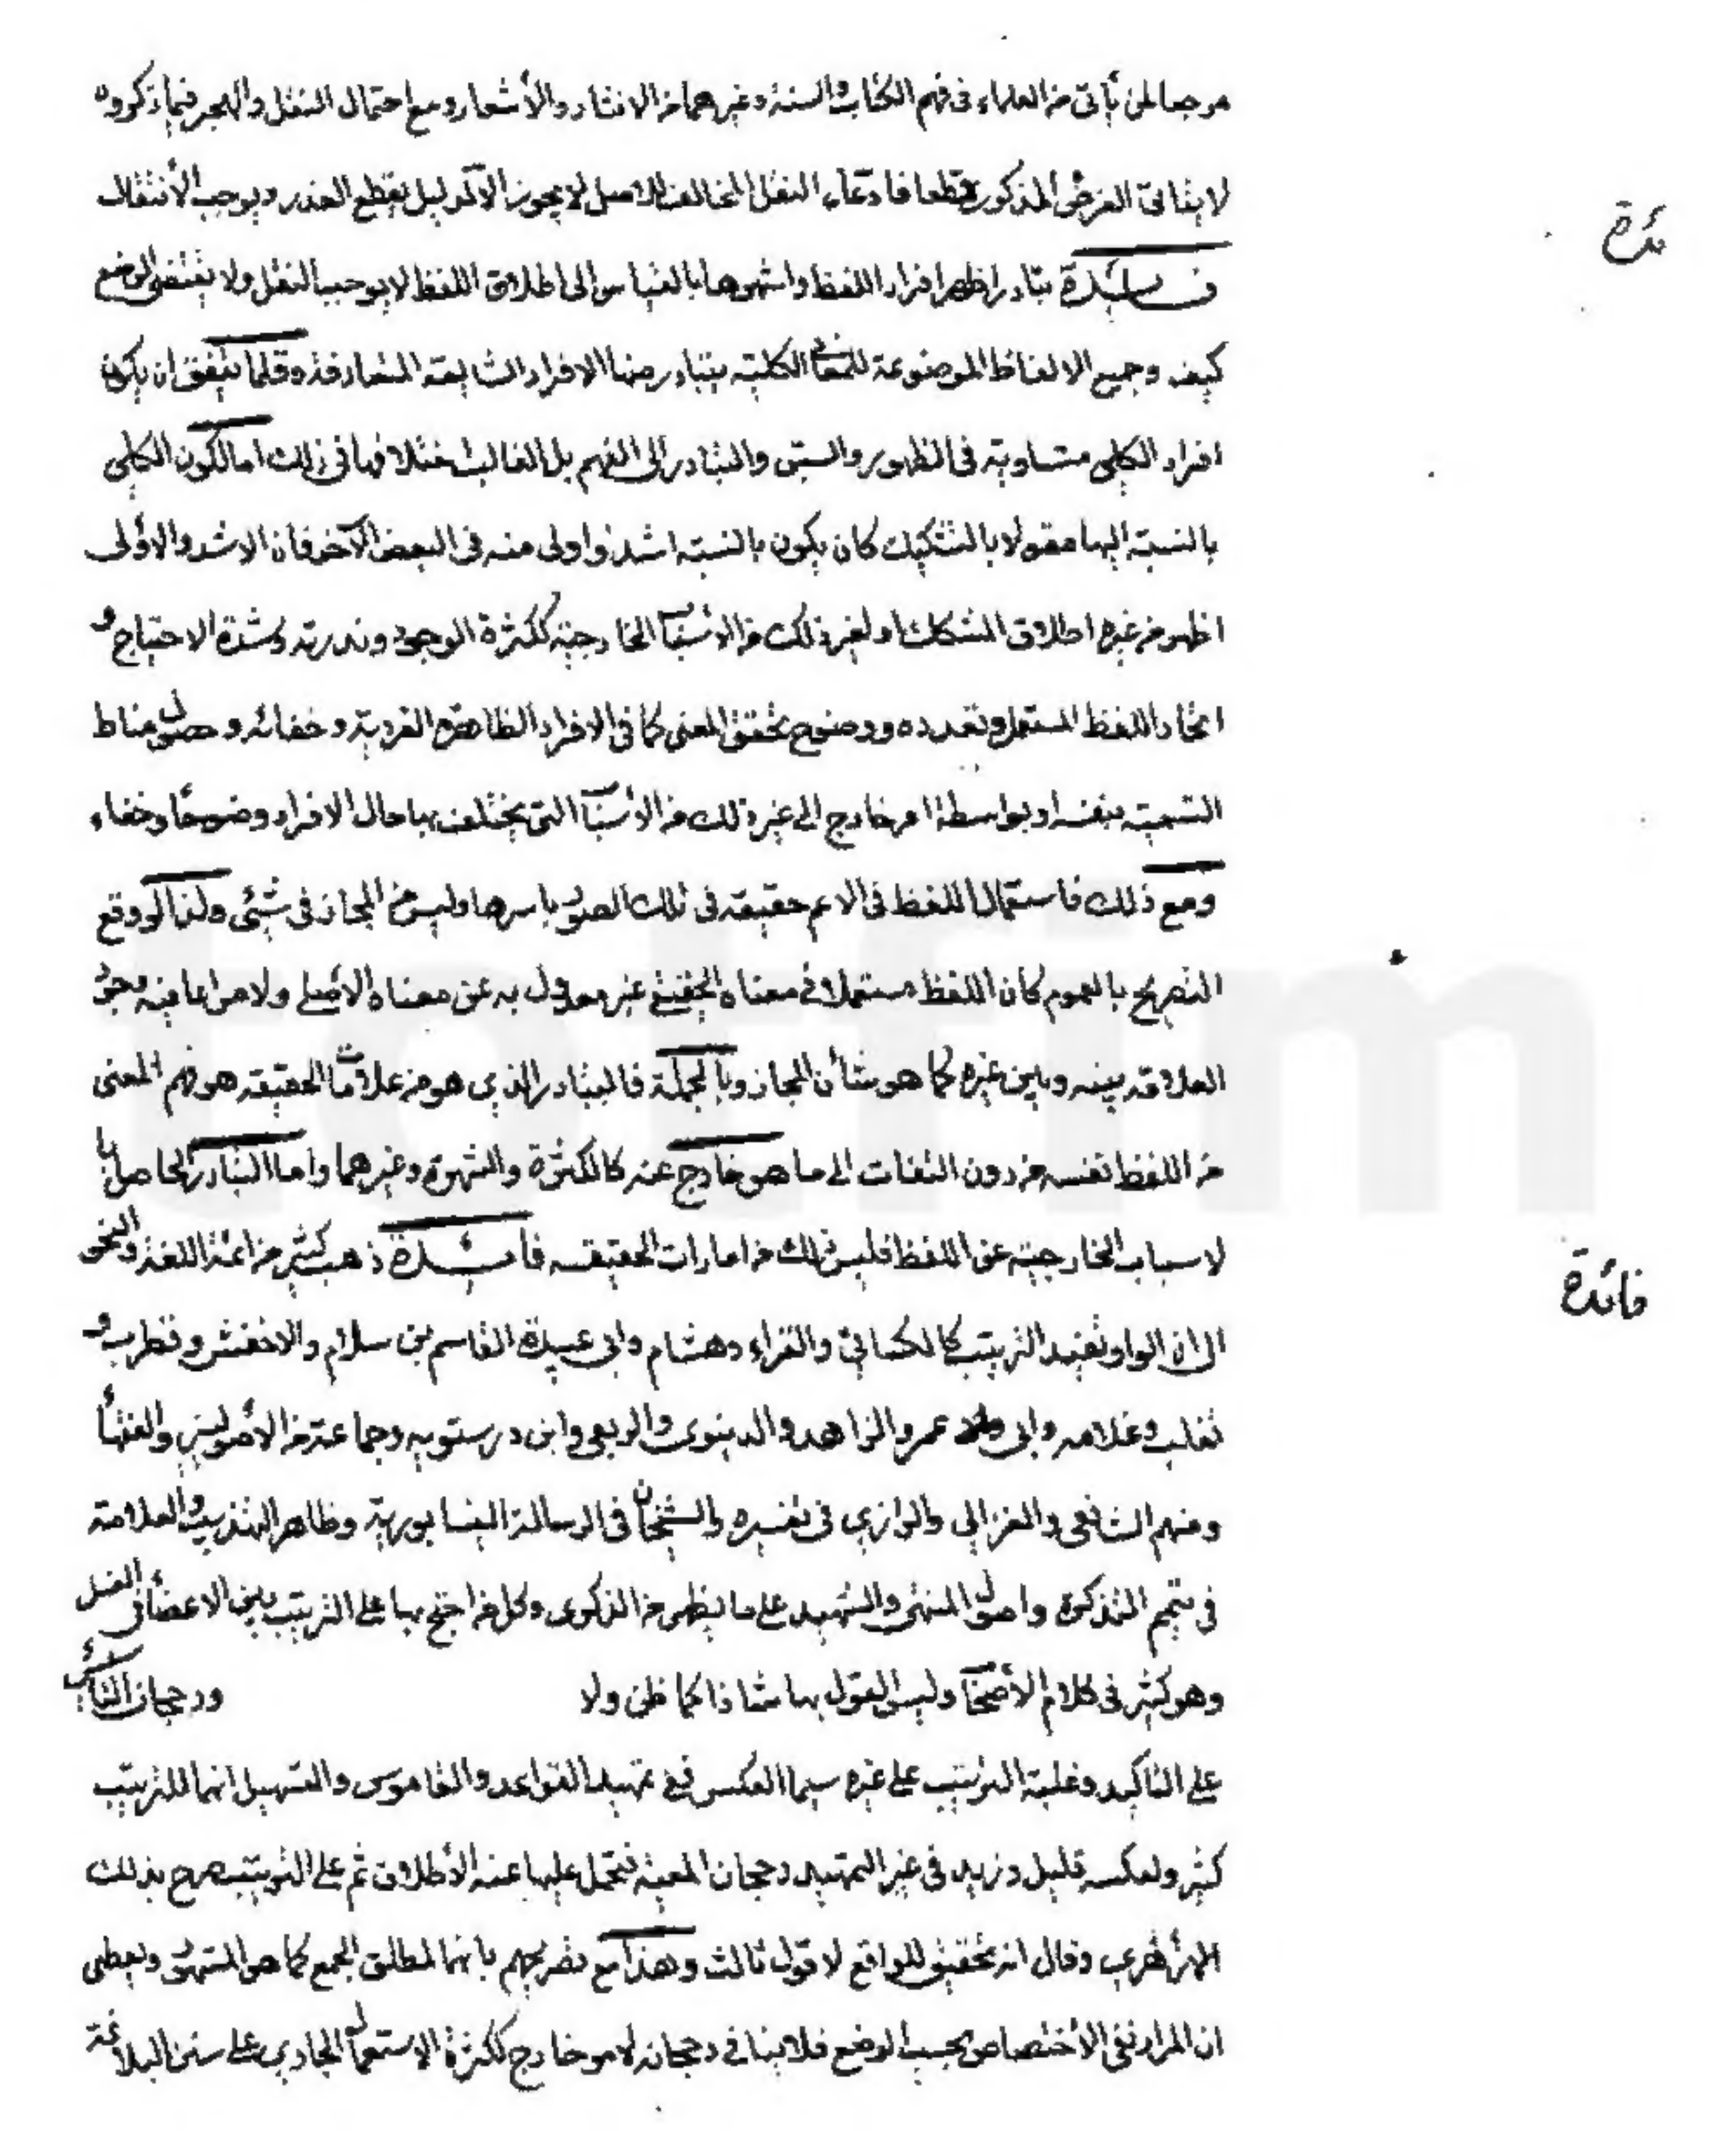 مرجعا لمن يأتى من العلماء فى فهم الكتاب والسنة وغيرهما من الانشاد والأشعار ومع احتمال النقل والهجر فيما ذكروه
لا يتأتى الغرض المذكور قطعا فادعاء النقل المخالف للاصل لا يجوز الا لدليل يقطع العذر ويوجب الأنتقال
فائدة تبادر اظهر افراد اللفظ واشهرها بالقياس الى اطلاق اللفظ لا يوجب النقل ولا يقتضى الوضع
كيف وجميع الالفاظ الموضوعة للمعانى الكلية يتبادر منها الافراد الشايعة المتعارفة وقلما يتفق ان يكون
افراد الكلى متساوية فى الظهور والسبق والتبادر الى الفهم بل الغالب اختلافها فى ذلك اما لكون الكلى
بالنسبة اليها مقولا بالتشكيك كان يكون بالنسبة اشد واولى منه فى البعض الآخر فان الاشد والاولى
اظهر من غيره اطلاق المشكك او لغير ذلك من الأسباب الخارجية ككثرة الوجود وندرته وشدة الاحتياج و
اتحاد اللفظ المستعمل وتعدده ووضوح تحقق المعنى كما فى الافراد الظاهرة الفردية وخفائه وحصول مناط
التسمية بنفسه او بواسطة امر خارج الى غير ذلك من الأسباب التى يختلف بها حال الافراد وضوحا وخفاء
ومع ذلك فاستعمال اللفظ فى الاعم حقيقة فى تلك الصور باسرها وليس من المجاز فى شيئ ولذا لو وقع
التصريح بالعموم كان اللفظ مستعملا فى معناه الحقيقى غير معدول به عن معناه الأصلى ولا مراعا فيه وجود
العلاقة بينه وبين غيره كما هو شأن المجاز وبالجملة فالتبادر الذى هو من علامات الحقيقة هو فهم المعنى
من اللفظ نفسه من دون التفات الى ما هو خارج عنه كالكثرة والشهرة وغيرهما واما التبادر الحاصل با
لاسباب الخارجية عن اللفظ فليس ذلك من امارات الحقيقة فائدة ذهب كثير من ائمة اللغة والنحو
الى ان الواو تفيد الترتيب كالكسائى والفراء وهشام وابى عبيدة القاسم بن سلام والاخفش وقطرب و
ثعلب وغلامه وابى عمرو الزاهد والدينورى والربعى وابن درستويه وجماعة من الأصوليين والفقهاء
ومنهم الشافعى والغزالى والرازى فى تفسيره والشيخان فى الرسالة النيسابورية وظاهر التهذيب والعلامة
فى تتميم التذكرة واصول المنتهى والشهيد على ما يظهر من الذكرى وكل من احتج بها على الترتيب بين الاعضاء فى الغسل
وهو كثير فى كلام الأصحاب وليس القول بها شاذا كما ظن ولا ورجحان التأسيس
على التاكيد وغلبة الترتيب على غيره سيما العكس ففى تمهيد القواعد والقاموس والتسهيل انها للترتيب
كثير ولعكسه قليل وزيد فى غير التمهيد رجحان المعية فتحمل عليها عند الأطلاق ثم على الترتيب صرح بذلك
وقال انه تحقيق للواقع لا قول ثالث وهذا مع تصريحهم بانها لمطلق الجمع كما هو المشهور ويعطى
ان المراد نفى الأختصاص بحسب الوضع فلا ينافى رجحانه لامر خارج ككثرة الاستعمال الجارى على سنن البلاغة
ئدة
فائدة